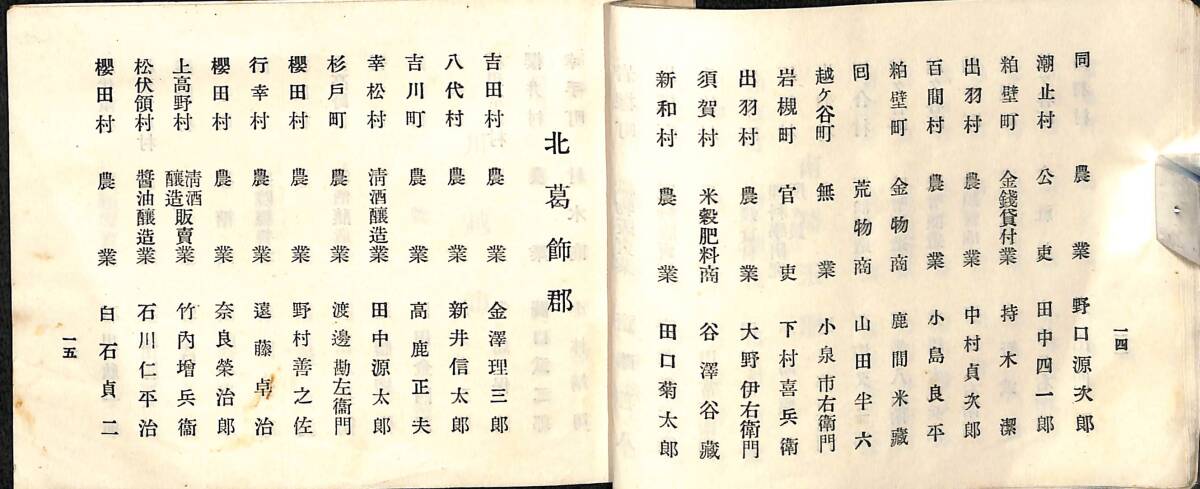 同村 農業 野口源次郎
潮止村 公吏 田中四一郎
粕壁町 金錢貸付業 持木潔
出羽村 農業 中村貞次郎
百間村 農業 小島良平
粕壁町 金物商 鹿間米藏
同合村 荒物商 山田半六
越ケ谷町 無業 小泉市右衛門
岩槻町 官吏 下村喜兵衛
出羽村 農業 大野伊右衛門
須賀村 米穀肥料商 谷澤谷藏
新和村 農業 田口菊太郎
一四
北葛飾郡
吉田村 農業 金澤理三郎
八代村 農業 新井信太郎
吉川町 農業 高鹿正夫
幸松村 淸酒釀造業 田中源太郎
杉戸町 農業 渡邊勘左衞門
櫻田村 農業 野村善之佐
行幸村 農業 遠藤卓治
櫻田村 農業 奈良榮治郎
上高野村 淸酒釀造販賣業 竹內增兵衞
松伏領村 醬油釀造業 石川仁平治
櫻田村 農業 白石貞二
一五